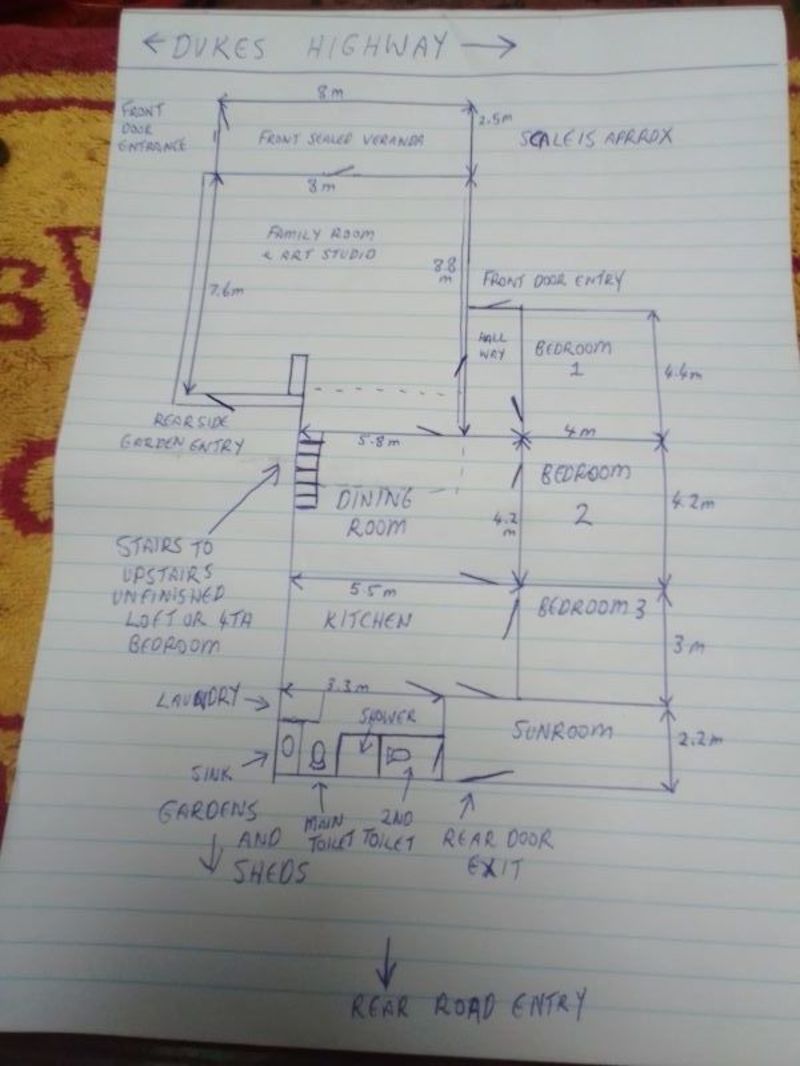 ← DUKES HIGHWAY →
FRONT
DOOR
ENTRANCE
8m
2.5m
FRONT SEALED VERANDA
SCALE IS APRROX
8m
FAMILY ROOM
& ART STUDIO
7.6m
8.8
m
FRONT DOOR ENTRY
HALL
WAY
BEDROOM
1
4.4m
REAR SIDE
GARDEN ENTRY
5.8m
4m
BEDROOM
2
DINING
ROOM
4.2
m
4.2m
STAIRS TO
UPSTAIRS
UNFINISHED
LOFT OR 4TH
BEDROOM
5.5m
KITCHEN
BEDROOM 3
3m
LAUNDRY →
3.3m
SHOWER
SUNROOM
2.2m
SINK
GARDENS
AND
SHEDS
MAIN
TOILET
2ND
TOILET
REAR DOOR
EXIT
REAR ROAD ENTRY